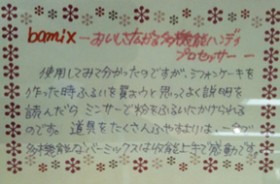 bamix ーおいしさ広がる多機能ハンディ
プロセッサーー
使用してみて分かったのですが、シフォンケーキを
作った時ふるいを買おうと思ってよく説明を
読んだら ミンサーで粉をふるいにかけられる
のです。道具をたくさんふやすよりは、一つで
多機能なバーミックスは万能上手で感動です。